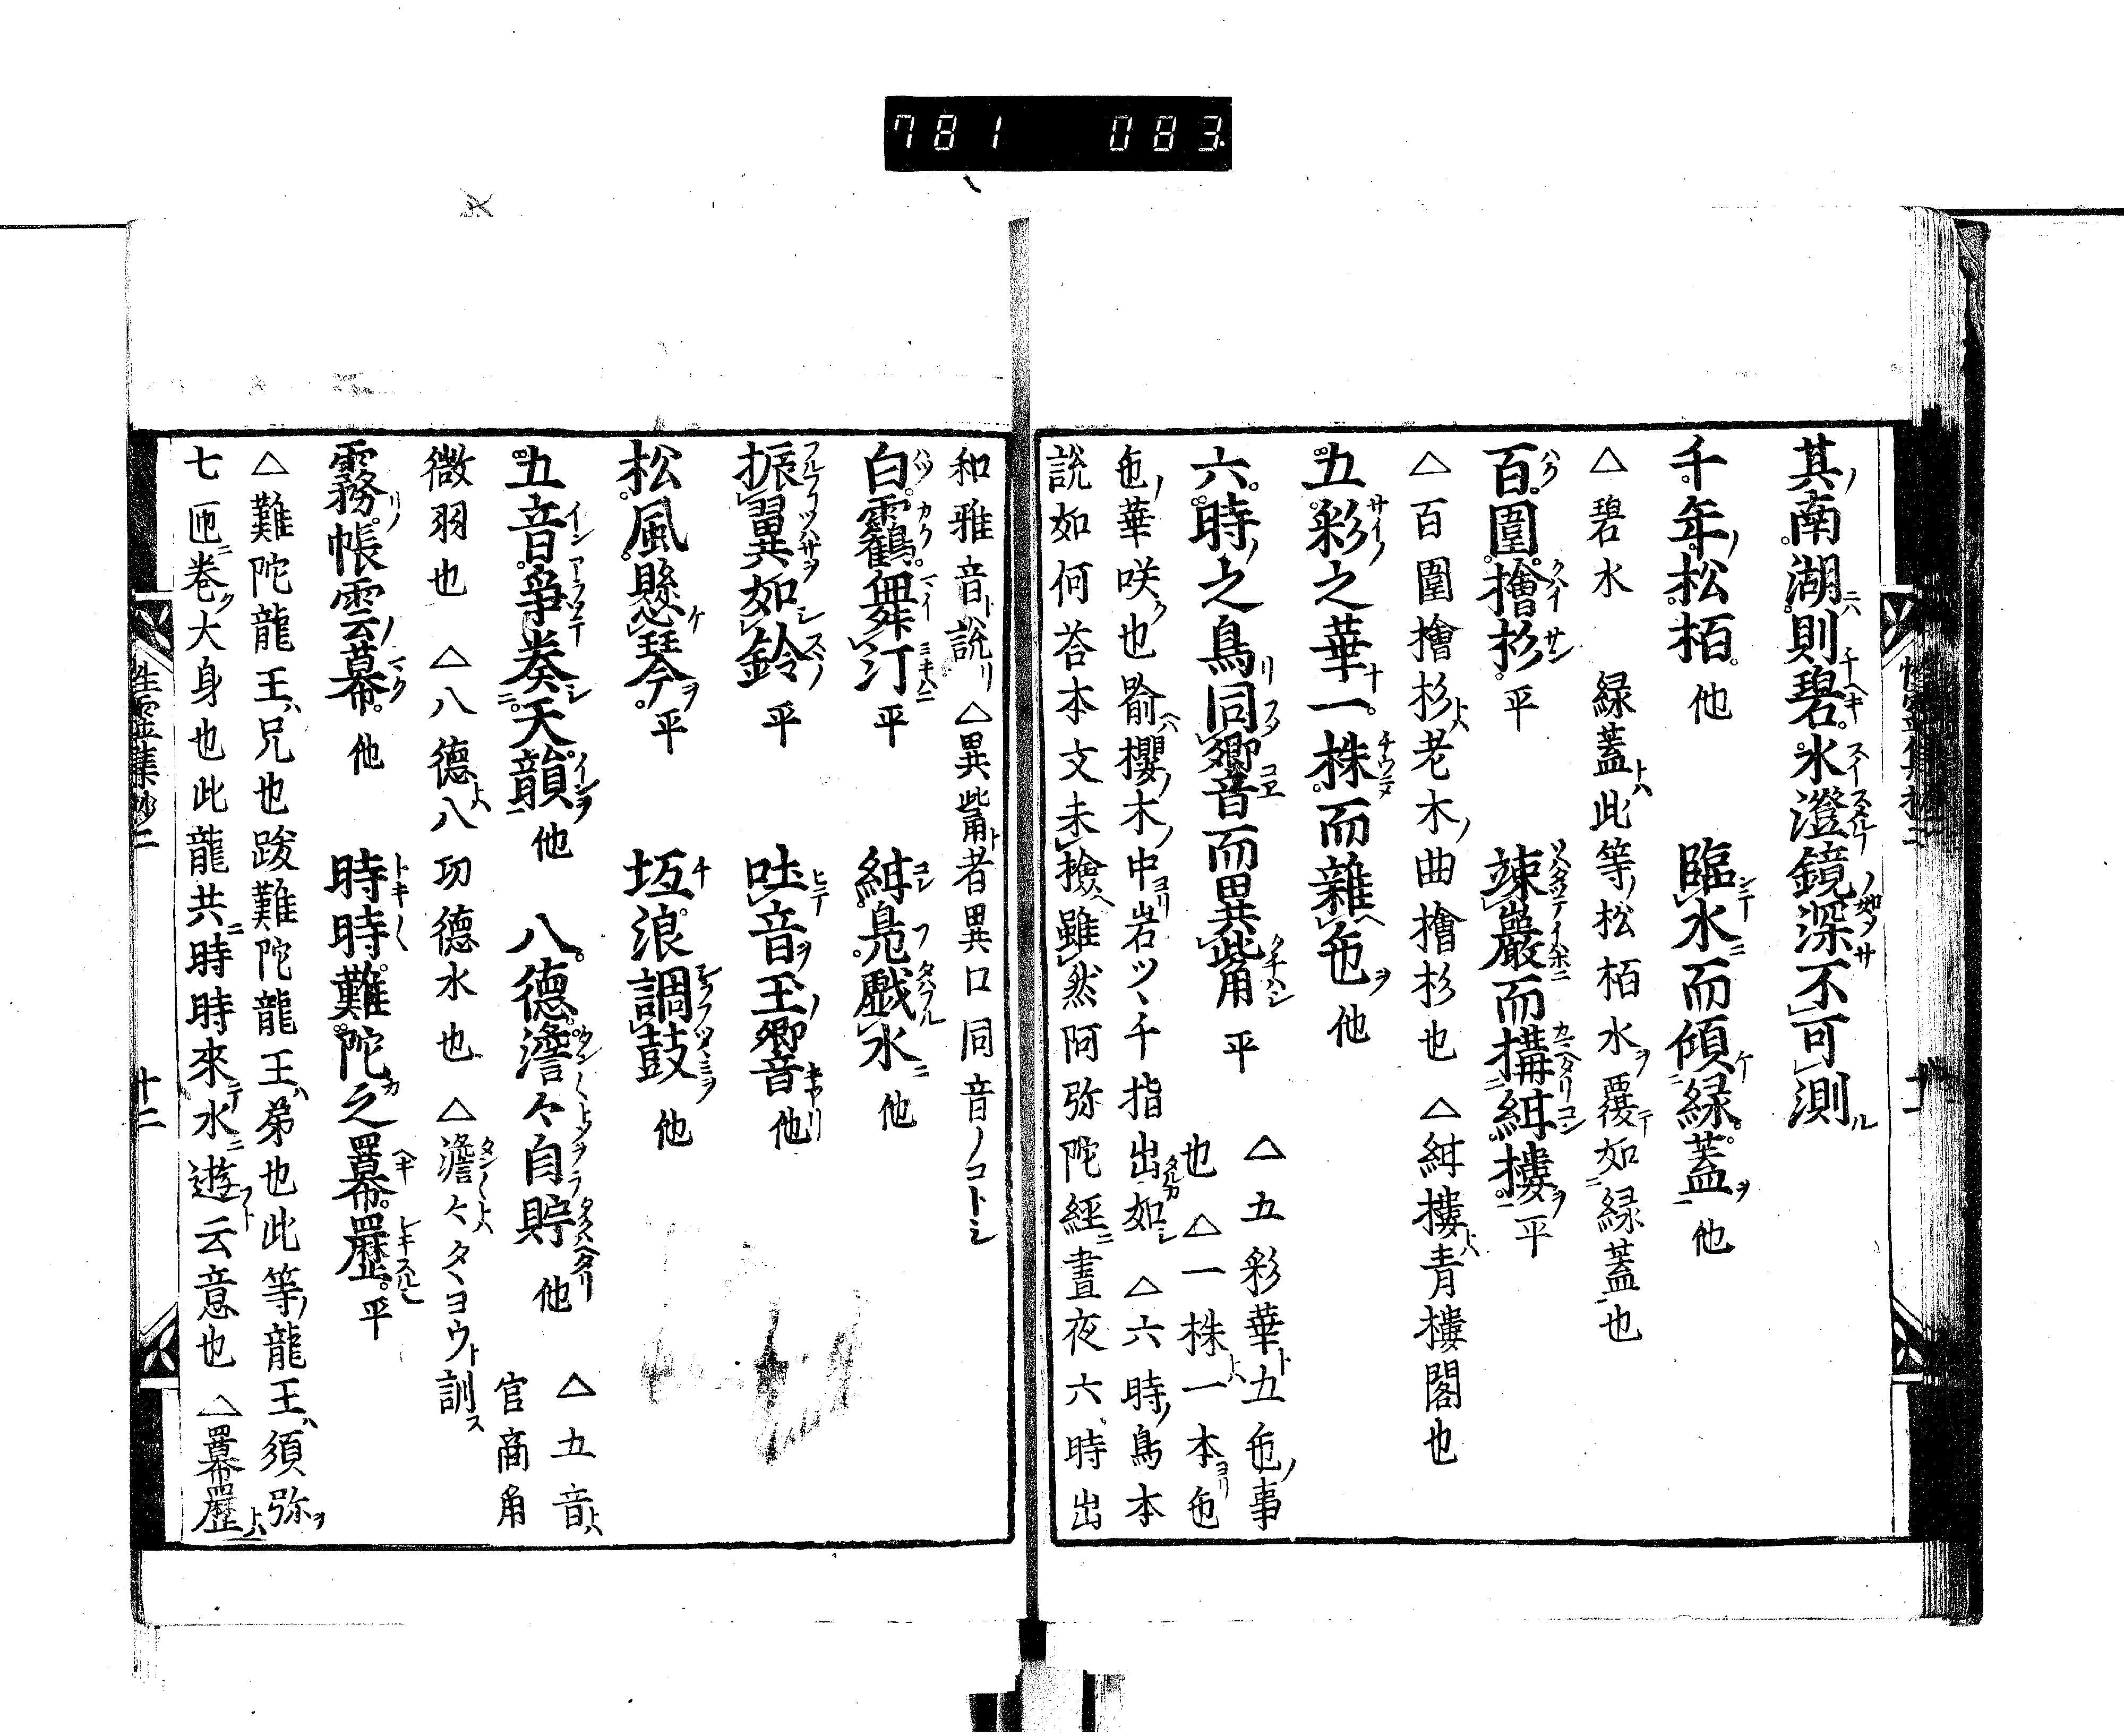 781 083
其南湖則碧水澄鏡深不可測
千年松栢 他 臨水而傾緑蓋 他
△碧水 緑蓋トハ此等ノ松栢水ヲ覆テ如ニ緑蓋一也
百圍檜杉 平 竦巖而構紺樓 平
△百圍檜杉トハ老木ノ曲檜杉也 △紺樓トハ青樓閣也
五彩之華一株而雜色 他
△五彩華ト五色ノ事
也 △一株トハ一本ヨリ色
六時之鳥同響而異觜 平
色ノ華咲ク也喩ヘハ櫻ノ木ノ中ヨリ岩ツヽ千指出タルカ如シ △六時ノ鳥本
説如何荅本文未撿ヘ雖然阿弥陀經ニ晝夜六時出
和雅音ト説リ △異觜ト者異口同音ノコトシ
白鶴舞汀 平 紺鳧戯水 他
振翼如鈴 平 吐音玉響 他
松風懸琴 平 坻浪調鼓 他
五音爭奏天韻 他 八德澹々自貯 他
△五音トハ
官商角
微羽也 △八德トハ八功德水也 △澹々トハタヽヨウト訓ス
霧帳雲幕 他 時時難陀之羃䍥 平
△難陀龍王ハ兄也跋難陀龍王ハ弟也此等ノ龍王ハ須弥ヲ
七匝ニ巻ク大身也此龍共ニ時時來テ水ニ遊フト云意也 △羃䍥トハ
性霊集抄二 十二